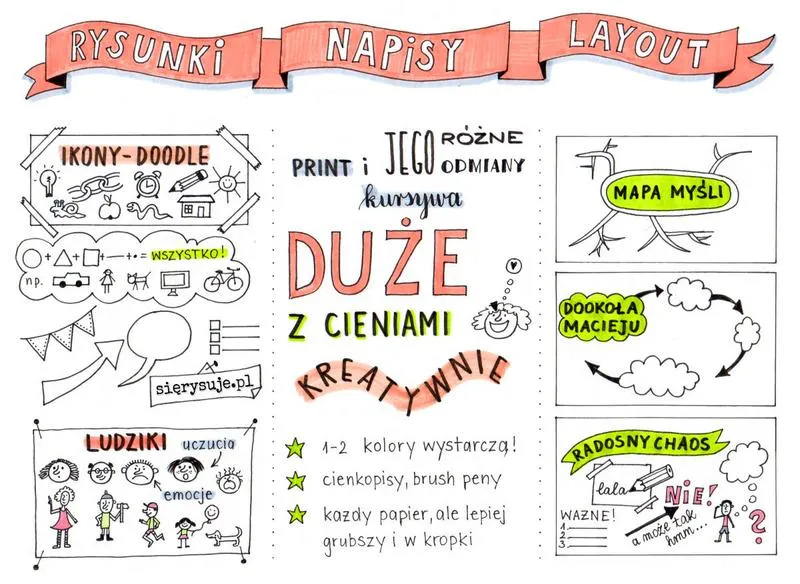 RYSUNKi
NAPiSY
LAYOUT
IKONY-DOODLE
WSZYSTKO!
np.
sięrysuje.pl
LUDZIKI
uczucia
emocje
PRINT i JEGO RÓŻNE ODMIANY
kursywa
DUŻE
Z CIENIAMI
KREATYWNIE
1-2 kolory wystarczą!
cienkopisy, brush peny
każdy papier, ale lepiej
grubszy i w kropki
MAPA MYŚLI
DOOKOŁA
MACIEJU
RADOSNY CHAOS
lala
NiE!
WAŻNE!
1
2
3
a może tak
hmm...
?